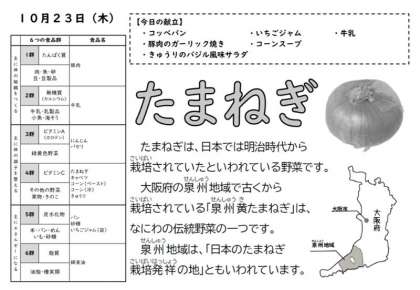 10月23日（木）
【今日の献立】
・コッペパン ・いちごジャム ・牛乳
・豚肉のガーリック焼き ・コーンスープ
・きゅうりのバジル風味サラダ
6つの食品群 食品名
主に体の組織をつくる
1群 たんぱく質
肉・魚・卵
豆・豆製品
豚肉
2群 無機質
（カルシウム）
牛乳・乳製品
小魚・海そう
牛乳
主に体の調子を整える
3群 ビタミンA
（カロテン）
緑黄色野菜
にんじん
パセリ
4群 ビタミンC
その他の野菜
果物・きのこ
たまねぎ
キャベツ
コーン（ペースト）
コーン（冷）
きゅうり
主にエネルギーになる
5群 炭水化物
米・パン・めん
いも・砂糖
パン
砂糖
いちごジャム（袋）
6群 脂質
油脂・種実類
綿実油
たまねぎ
たまねぎは、日本では明治時代から
さいばい
栽培されていたといわれている野菜です。
せんしゅう
大阪府の泉州地域で古くから
さいばい せんしゅう き
栽培されている「泉州黄たまねぎ」は、
なにわの伝統野菜の一つです。
せんしゅう
泉州地域は、「日本のたまねぎ
さいばいはっしょう
栽培発祥の地」ともいわれています。
大阪府
大阪市
せんしゅう
泉州地域